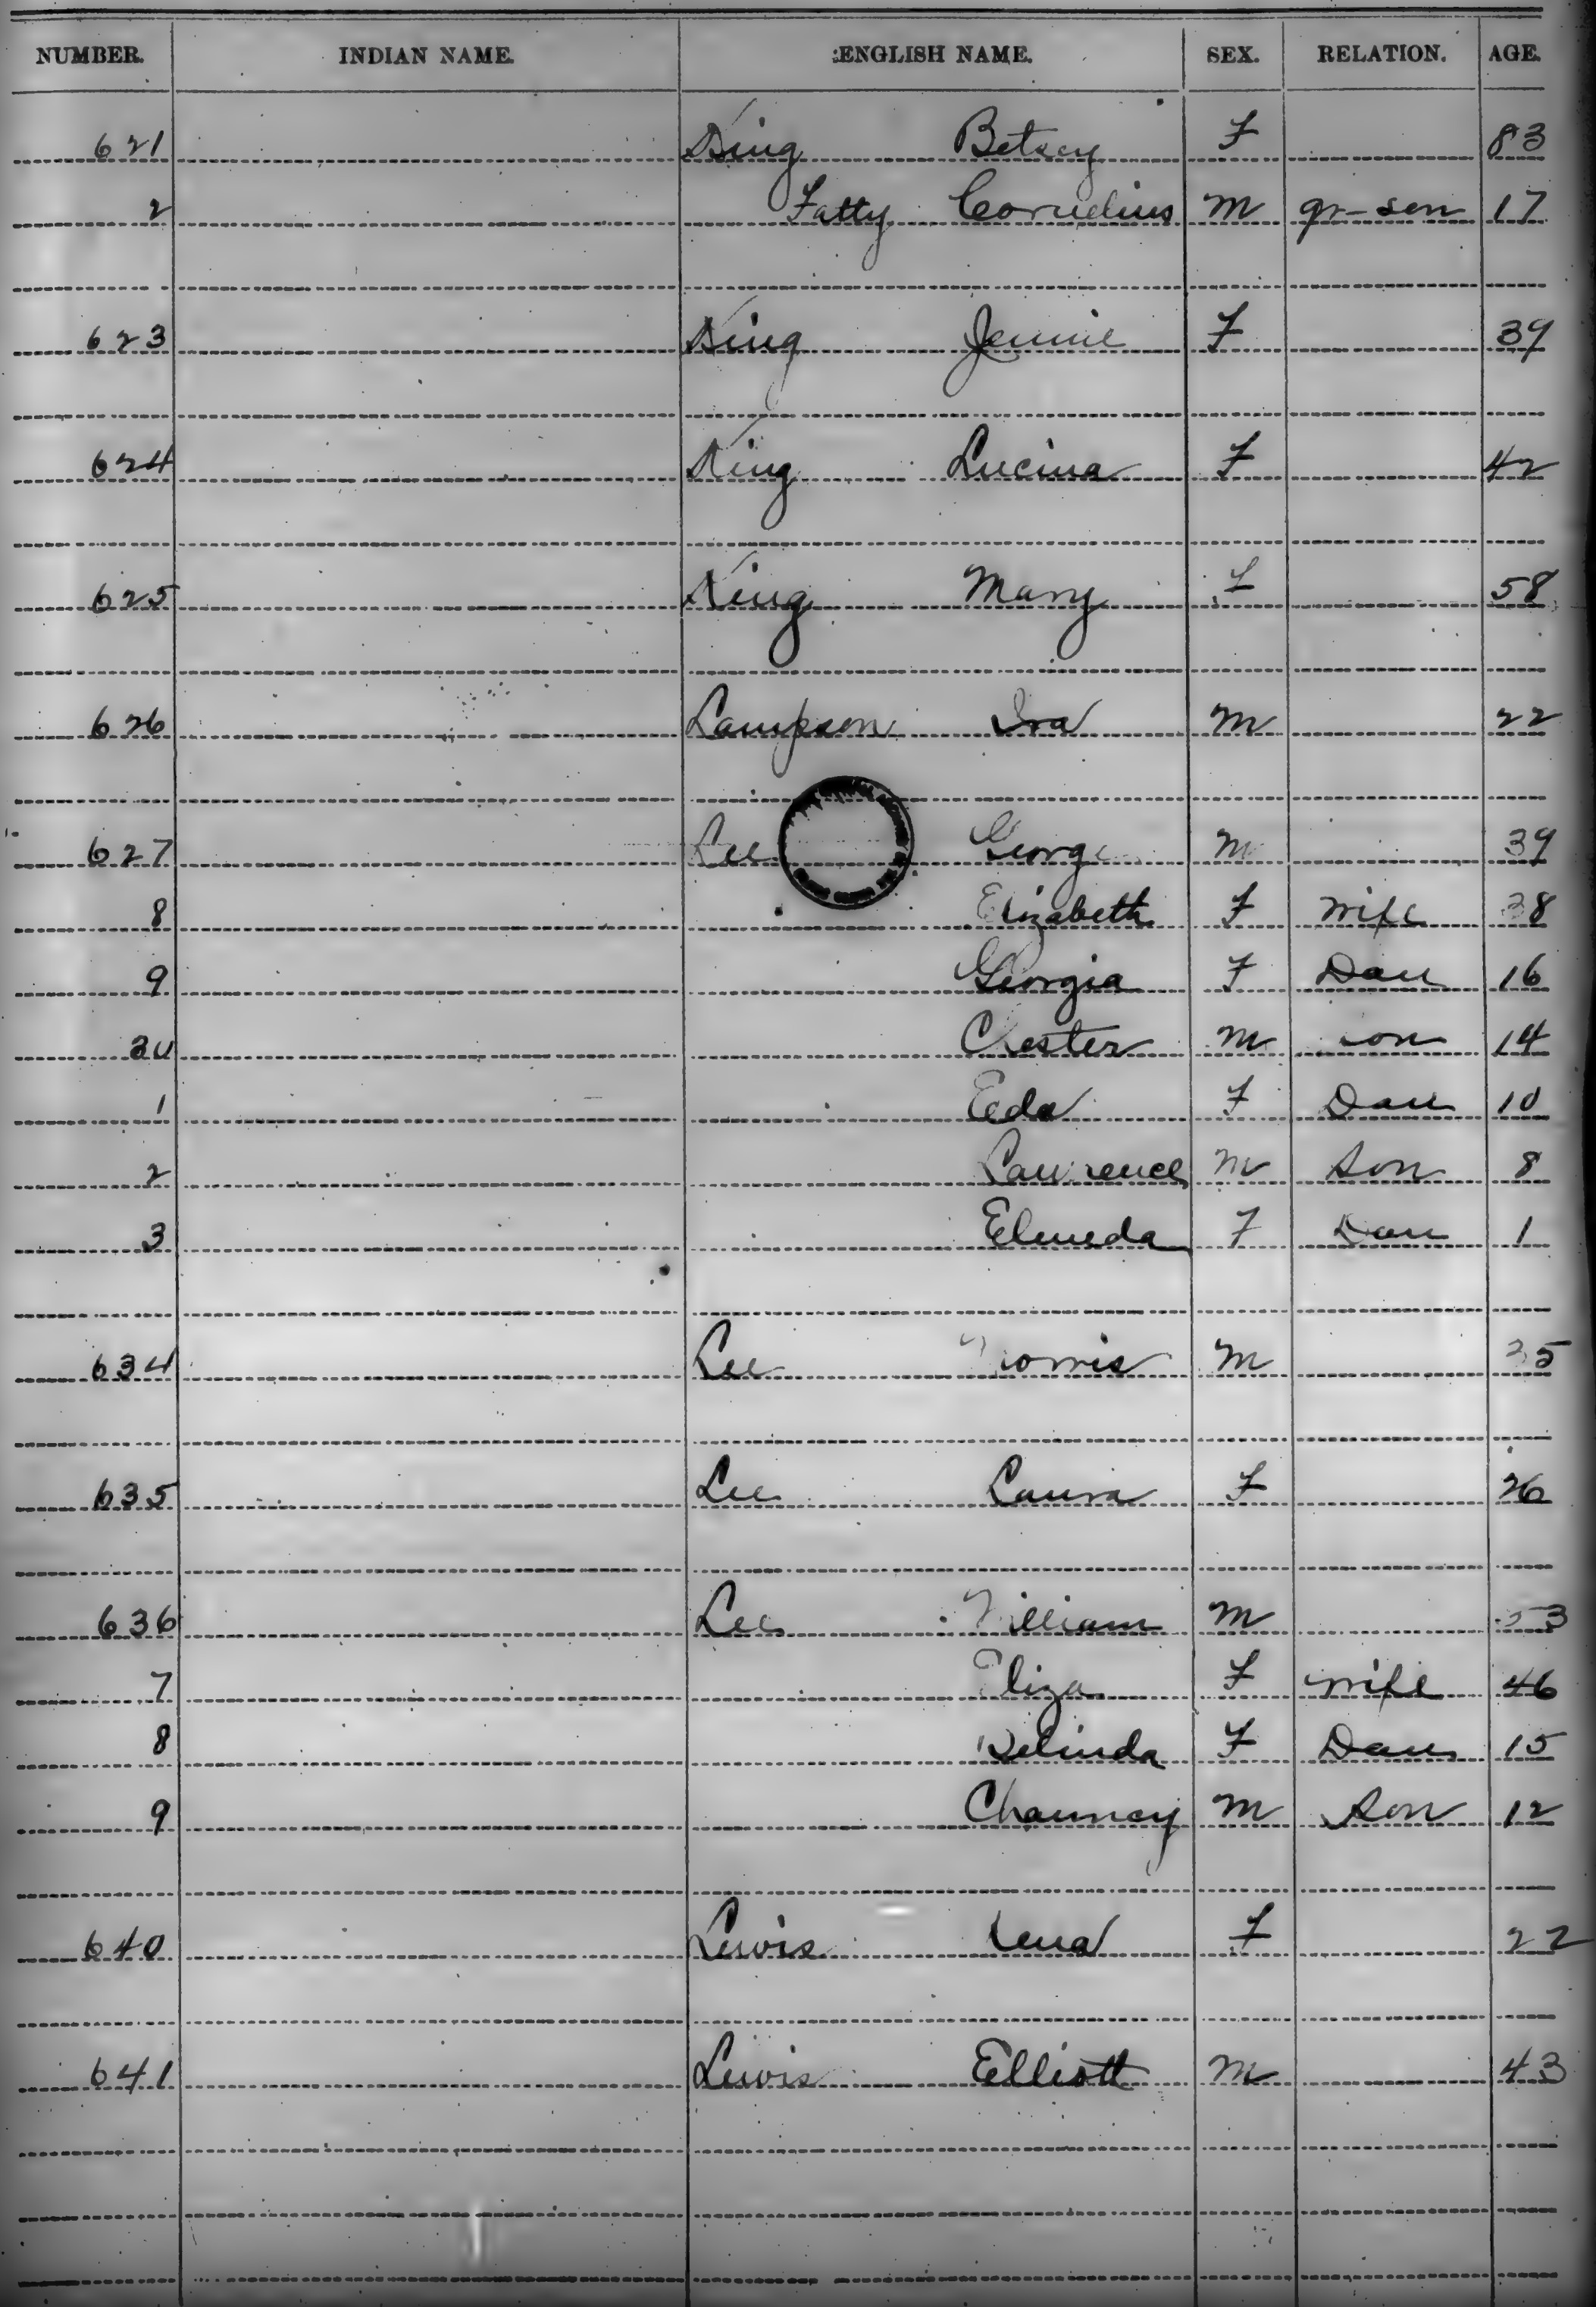 NUMBER. INDIAN NAME. ENGLISH NAME. SEX. RELATION. AGE.
621 King Betsey F 83
2 Fatty Cornelius M gr-son 17
623 King Jennie F 39
624 King Lucina F 42
625 King Mary F 58
626 Lampson Ira M 22
627 Lee George M 39
8 Elizabeth F Wife 38
9 Georgia F Dau 16
30 Chester M son 14
1 Eda F Dau 10
2 Lawrence M Son 8
3 Elmeda F Dau 1
634 Lee M 35
635 Lee Laura F 26
636 Lee William M 53
7 Eliza F Wife 46
8 Belinda F Dau 15
9 Chauncy M Son 12
640 Lewis Lena F 22
641 Lewis Elliott M 43